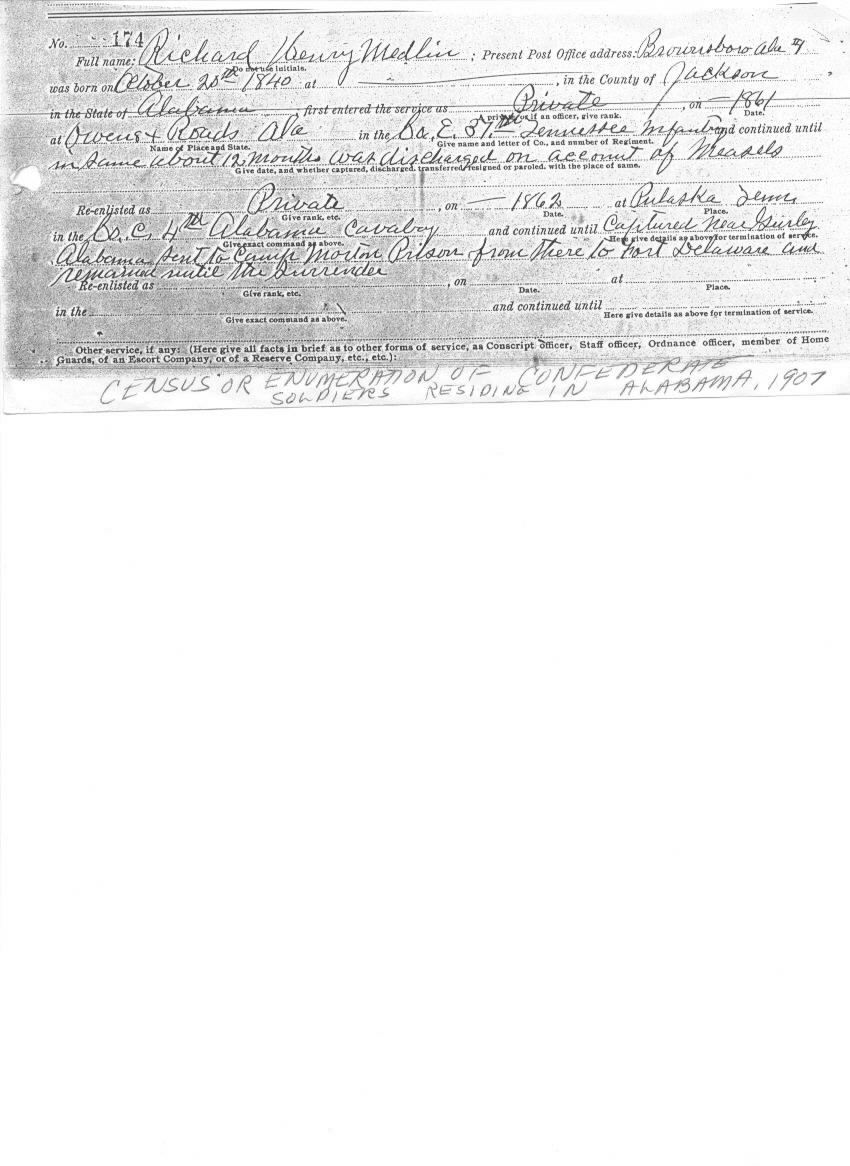 No. 174
Full name: Richard Henry Medlin ; Present Post Office address: Brownsboro Ala
Do not use initials.
was born on October 20th 1840 at — , in the County of Jackson
in the State of Alabama , first entered the service as Private , on — 1861
A private, or if an officer, give rank. Date.
at Owens X Roads Ala in the Co. E. 37th Tennessee Infantry and continued until
Name of Place and State. Give name and letter of Co., and number of Regiment.
in same about 12 months was discharged on account of Measels
Give date, and whether captured, discharged, transferred, resigned or paroled, with the place of same.
Re-enlisted as Private , on — 1862 at Pulaska Tenn.
Give rank, etc. Date. Place.
in the Co. C. 4th Alabama Cavalry and continued until Captured Near Gurley
Give exact command as above. Here give details as above for termination of service.
Alabama sent to Camp Morton Prison from there to Fort Delaware and
remained until the Surrender
Re-enlisted as , on at
Give rank, etc. Date. Place.
in the and continued until
Give exact command as above. Here give details as above for termination of service.
Other service, if any: (Here give all facts in brief as to other forms of service, as Conscript officer, Staff officer, Ordnance officer, member of Home
Guards, of an Escort Company, or of a Reserve Company, etc., etc.):
CENSUS OR ENUMERATION OF CONFEDERATE
SOLDIERS RESIDING IN ALABAMA, 1907